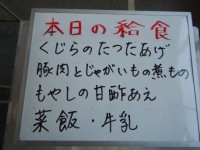 本日の給食
くじらのたつたあげ
豚肉とじゃがいもの煮もの
もやしの甘酢あえ
菜飯・牛乳